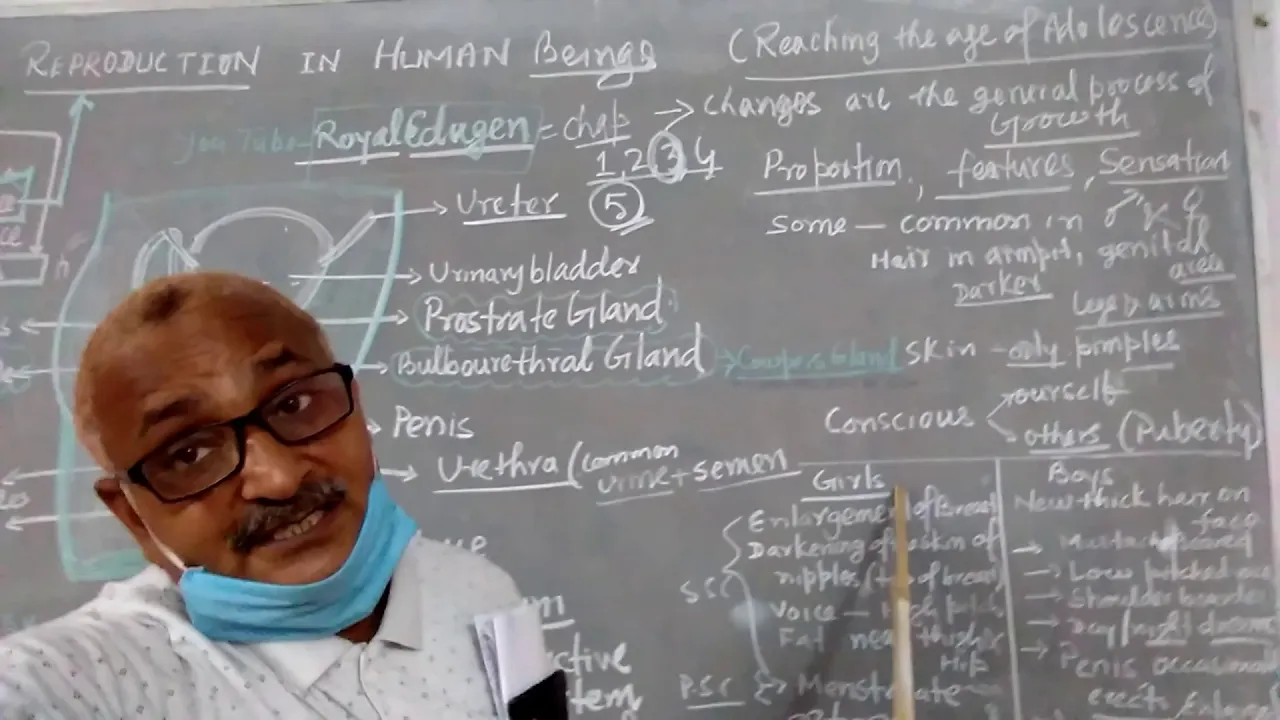 REPRODUCTION IN HUMAN Beings (Reaching the age of Adolescence)
You Tube - Royal Edugen = chap
1, 2, 3, 4
5
→ changes are the general process of
Growth
Proportion, features, Sensation
some — common in ♂ & ♀
Hair in armpit, genital
area
Darker
legs & arms
Skin - oily pimples
Conscious
yourself
others (Puberty)
Ureter
Urinary bladder
Prostrate Gland
Bulbourethral Gland → Cowpers Gland
Penis
Urethra (common
urine + semen
Girls
Enlargement of Breast
Darkening of skin of
nipples (tip of breast)
Voice — High pitch
Fat near thighs
Hip
P.S.C → Menstruate
Boys
New thick hair on
face
→ Low pitched
→ Shoulder broader
→ Day/night dreams
→ Penis